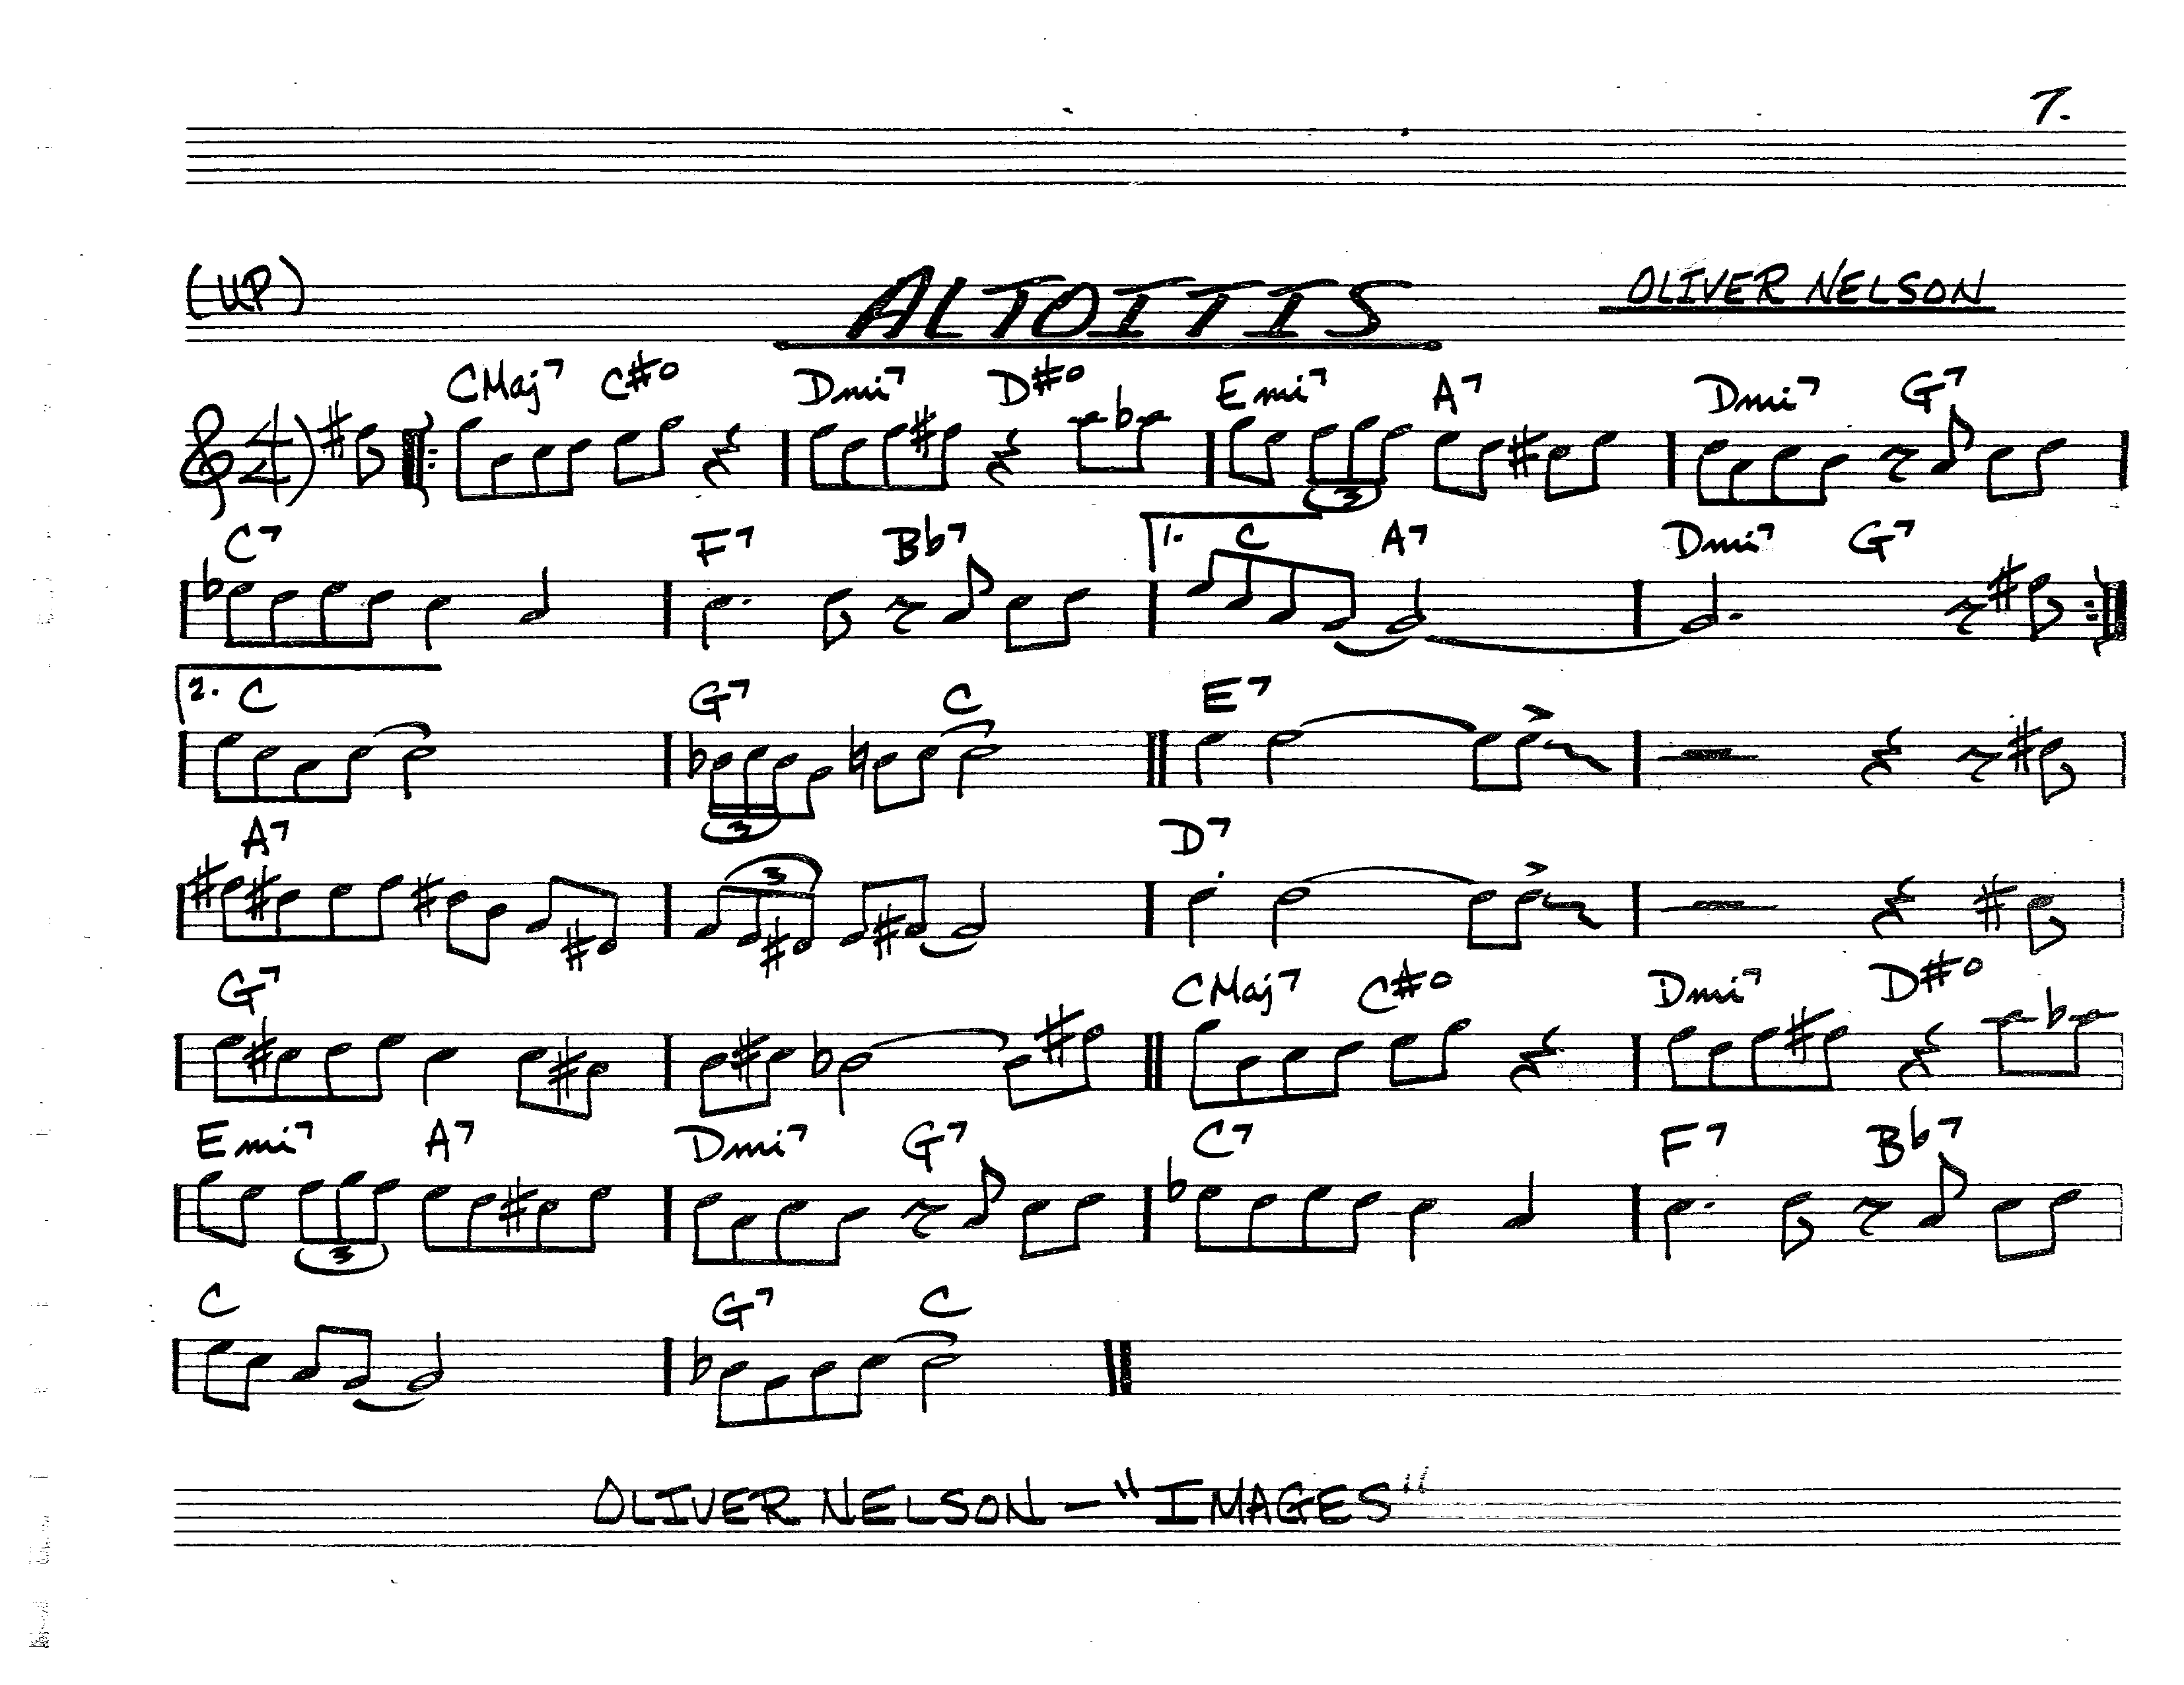 7.
(UP) ALTOITIS OLIVER NELSON
CMaj7 C#o Dmi7 D#o Emi7 A7 Dmi7 G7
4 4
3
C7 F7 Bb7 1. C A7 Dmi7 G7
2. C G7 C E7
3
A7 D7
3
G7 CMaj7 C#o Dmi7 D#o
Emi7 A7 Dmi7 G7 C7 F7 Bb7
3
C G7 C
OLIVER NELSON - "IMAGES"